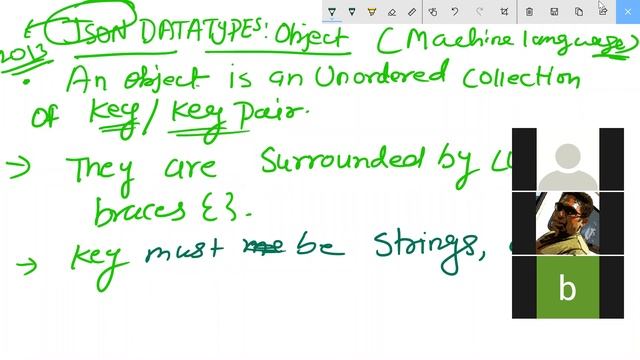 JSON DATATYPES: Object (Machine language)
2013
• An object is an Unordered Collection
Of Key/Key Pair.
→ They are Surrounded by
braces {}.
→ Key must be Strings,
b